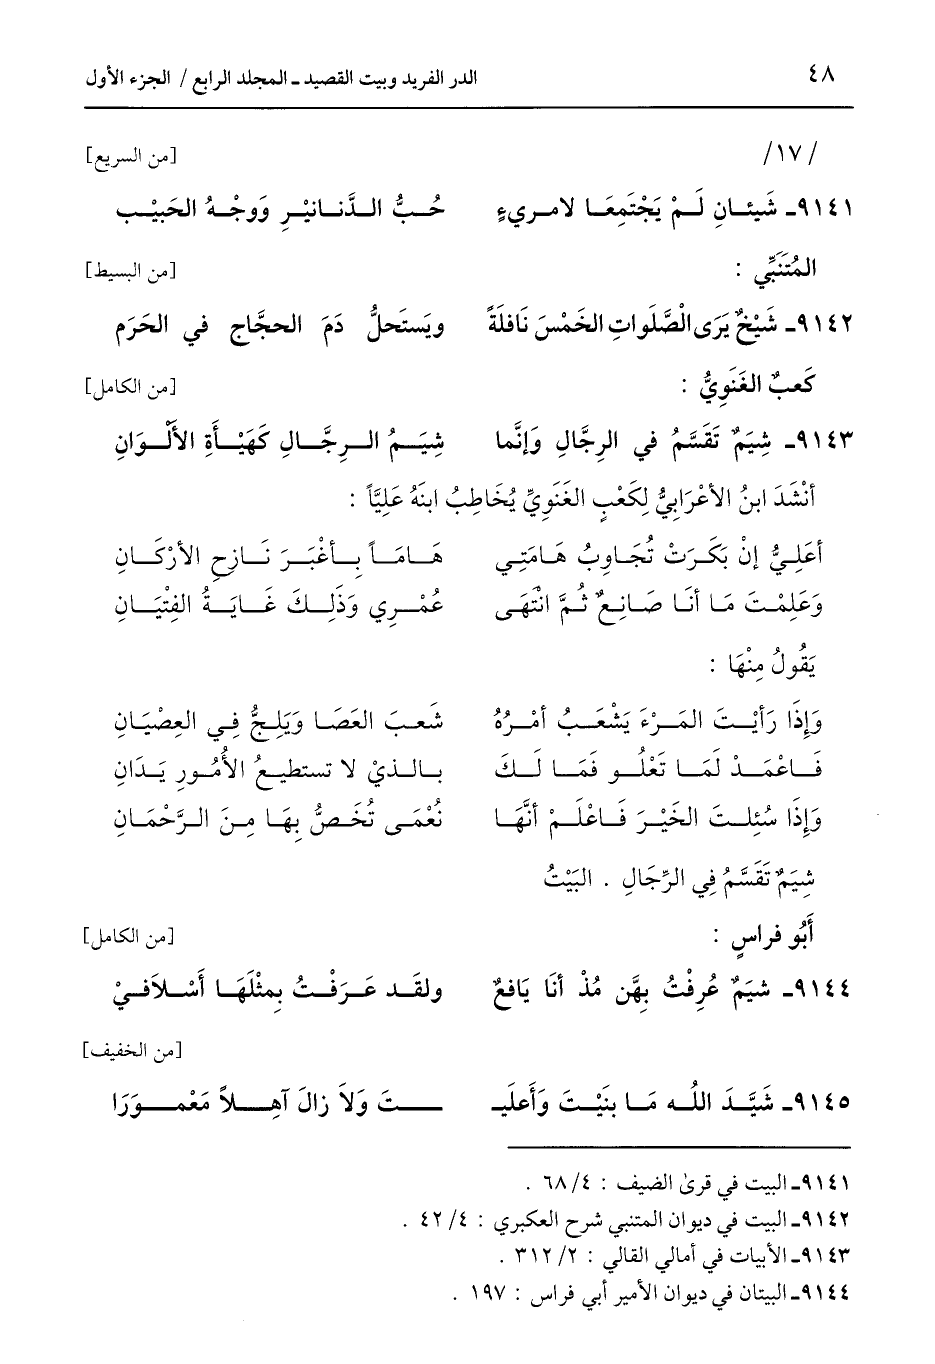 ٤٨ الدر الفريد وبيت القصيد ـ المجلد الرابع / الجزء الأول
/١٧/ [من السريع]
٩١٤١ـ شَيئـانِ لَـمْ يَجْتَمِعَـا لامـريءٍ حُـبُّ الـدَّنـانيْـرِ وَوَجْـهُ الحَبيْـبِ
المُتَنَبِّي : [من البسيط]
٩١٤٢ـ شَيْخٌ يَرَى الْصَّلَواتِ الخَمْسَ نَافلَةً ويَستَحلُّ دَمَ الحجَّاجِ في الحَرَمِ
كَعبٌ الغَنَوِيُّ : [من الكامل]
٩١٤٣ـ شِيَمٌ تَقَسَّمُ في الرِجَّالِ وَإنَّما شِيَـمُ الـرِجَّـالِ كَهَيْـأَةِ الأَلْـوَانِ
أنْشَدَ ابنُ الأعْرَابيُّ لِكَعْبٍ الغَنَويِّ يُخَاطِبُ ابنَهُ عَلِيَّاً :
أعَلِيُّ إنْ بَكَـرَتْ تُجَـاوِبُ هَـامَتِـي هَـامَـاً بِـأغْبَـرَ نَـازِحِ الأرْكَـانِ
وَعَلِمْـتَ مَـا أنَـا صَـانِـعٌ ثُـمَّ انْتَهَى عُمْـرِي وَذَلِـكَ غَـايَـةُ الفِتْيَـانِ
يَقُولُ مِنْهَا :
وَإِذَا رَأيْـتَ المَـرْءَ يَشْعَـبُ أمْـرُهُ شَعـبَ العَصَـا وَيَلِـجُّ فِـي العِصْيَـانِ
فَـاعْمَـدْ لَمَـا تَعْلُـو فَمَـا لَـكَ بـالـذيْ لا تستطيـعُ الأُمُـورِ يَـدَانِ
وَإِذَا سُئِلـتَ الخَيْـرَ فَـاعْلَـمْ أنَّهَـا نُعْمَـى تُخَـصُّ بِهَـا مِـنَ الـرَّحْمَـانِ
شِيَمٌ تَقَسَّمُ فِي الرِّجَالِ . البَيْتُ
أَبُو فراسٍ : [من الكامل]
٩١٤٤ـ شيَمٌ عُرِفْتُ بِهَّن مُذْ أنَا يَافعٌ ولقَـد عَـرَفْـتُ بِمثْلَهَـا أَسْـلاَفـيْ
[من الخفيف]
٩١٤٥ـ شَيَّـدَ اللَّـه مَـا بنَيْـتَ وَأَعلَيـ ـتَ وَلاَ زالَ آهـلاً مَعْمـورَا
٩١٤١ـ البيت في قرىٰ الضيف : ٦٨/٤ .
٩١٤٢ـ البيت في ديوان المتنبي شرح العكبري : ٤٢/٤ .
٩١٤٣ـ الأبيات في أمالي القالي : ٣١٢/٢ .
٩١٤٤ـ البيتان في ديوان الأمير أبي فراس : ١٩٧ .